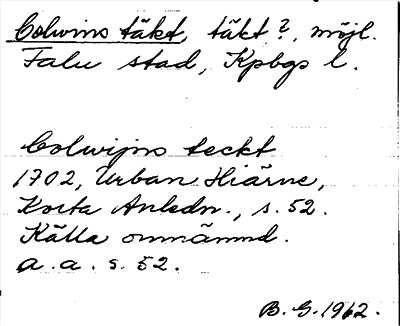 Colwins täkt, täkt?, möjl.
Falu stad, Kpbgs l.
Colwijns teckt
1702, Urban Hiärne,
Korta Anledn., s. 52.
Källa omnämnd.
a. a. s. 52.
B. G. 1962.